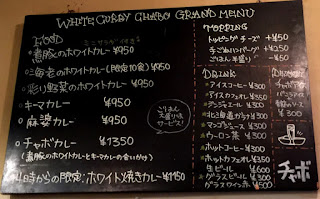 WHITE CURRY CHABO GRAND MENU
FOOD
煮豚のホワイトカレー ¥950
海老のホワイトカレー(限定10食) ¥950
彩り野菜のホワイトカレー ¥950
キーマカレー ¥950
麻婆カレー ¥950
チャボカレー ¥1350
(煮豚のホワイトとキーマカレーの合いがけ)
時からの限定:ホワイト焼きカレー ¥1150
ごはん
大盛り
サービス!
TOPPING
トッピング チーズ +¥50
手ごねハンバーグ
ごはん半盛り -¥50
DRINK
アイスコーヒー ¥300
アイスカフェオレ ¥350
ジンジャエール ¥300
¥300
マンゴジュース ¥300
ウーロン茶 ¥300
ホットコーヒー ¥300
ホットカフェオレ ¥350
生ビール ¥600
グラスビール ¥300
グラスワイン赤 ¥500
¥100
チャボ